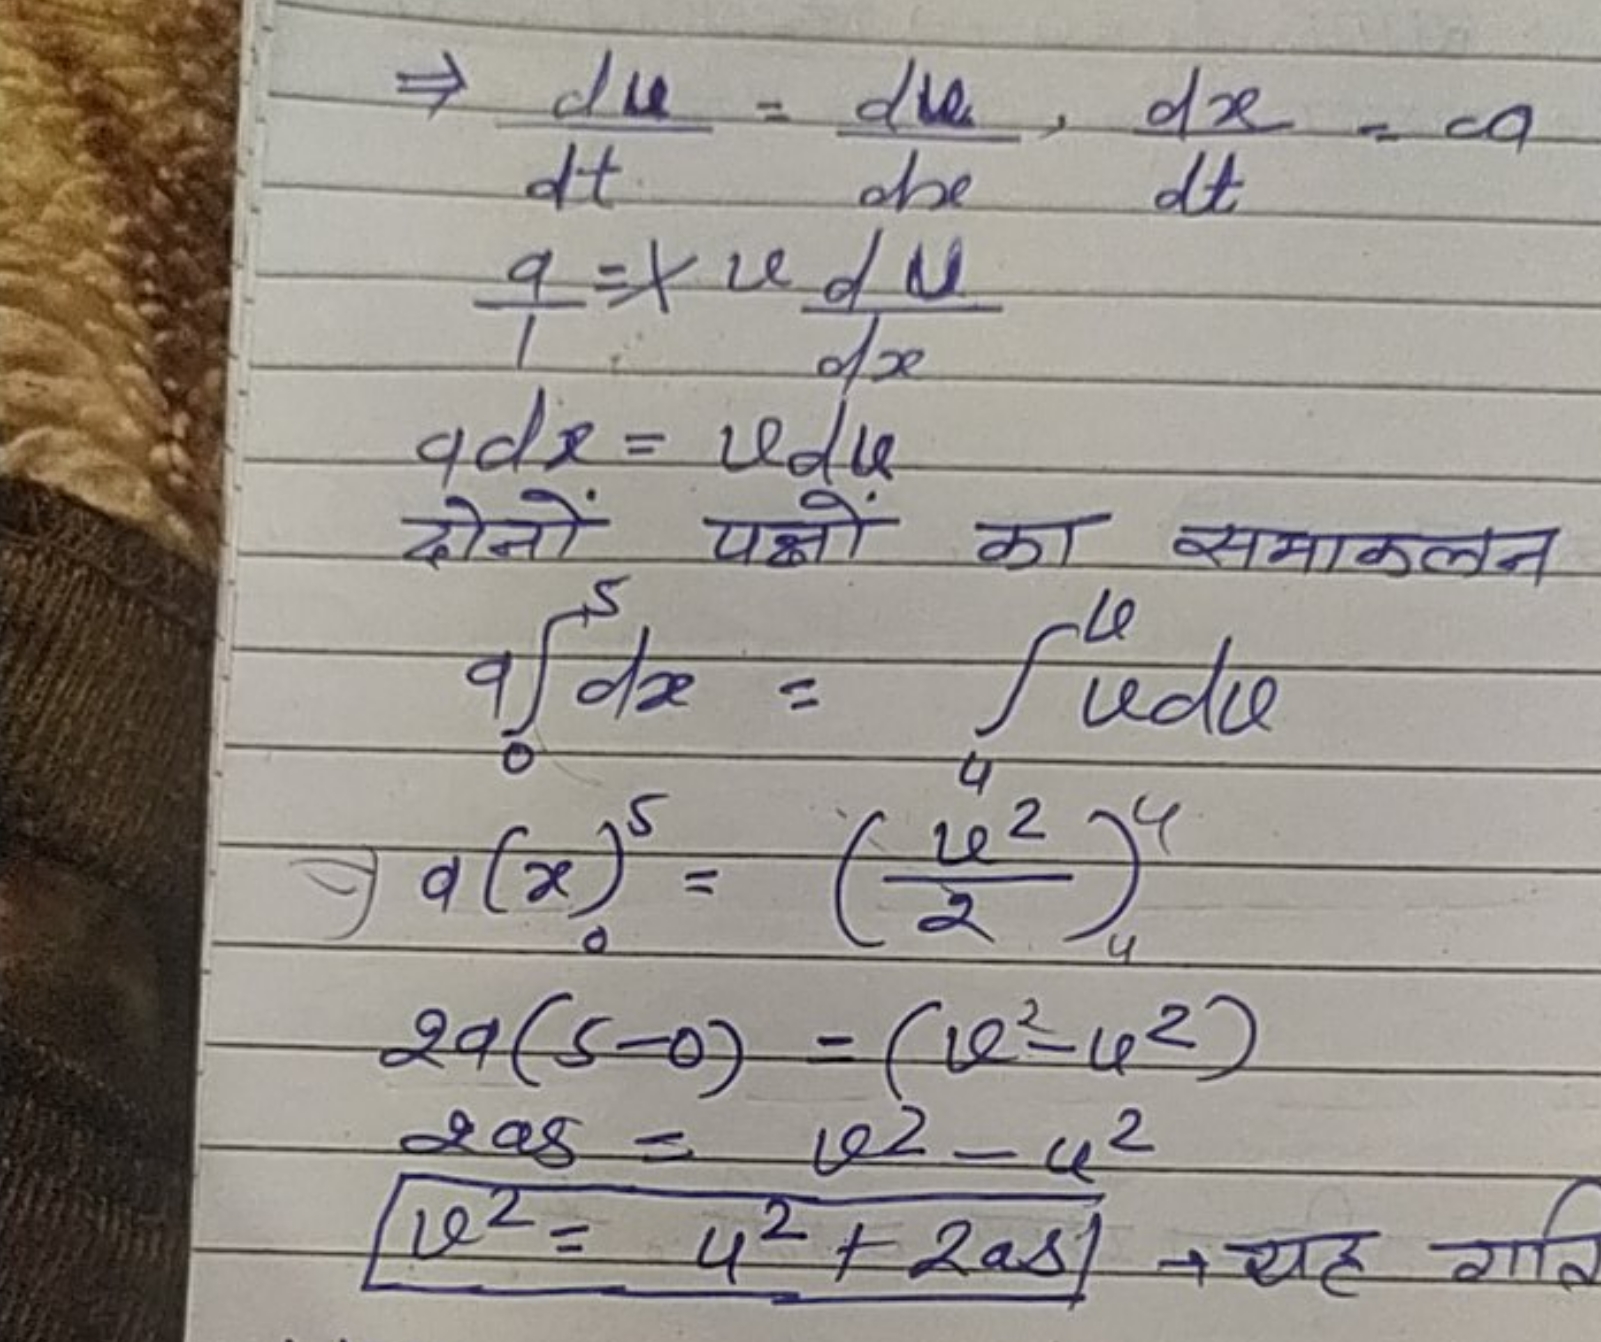 ⇒ dv/dt = dv/dx . dx/dt = a
a/1 = v dv/dx
adx = vdv
दोनों पक्षों का समाकलन
a∫₀ˢ dx = ∫ᵤᵛ vdv
⇒ a(x)₀ˢ = (v²/2)ᵤᵘ
2a(s-0) = (v²-u²)
2as = v² - u²
v² = u² + 2as → यह